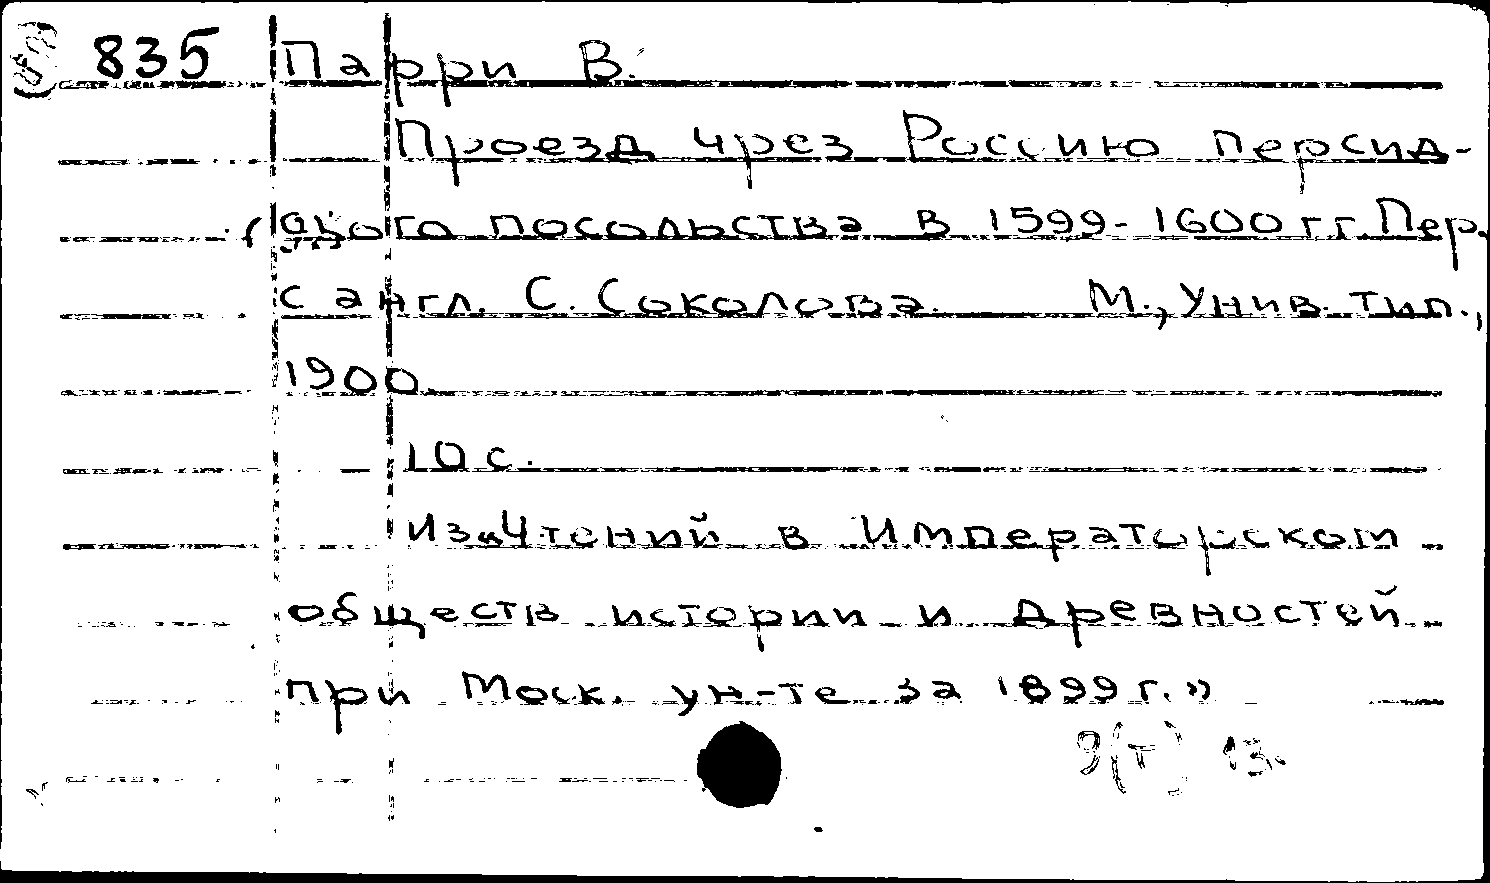 835 Парри В.
Проезд чрез Россию персид-
ского посольства в 1599-1600 гг. Пер.
с англ. С. Соколова. М., Унив. тип.,
1900.
10 с.
Из „Чтений в Императорском
обществ истории и древностей
при Моск. ун-те за 1899 г.”
9(т) 13.